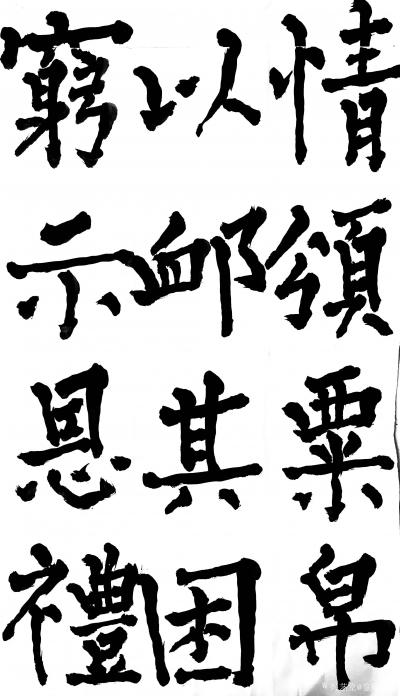 情頒粟帛
以卹其困
窮示恩禮